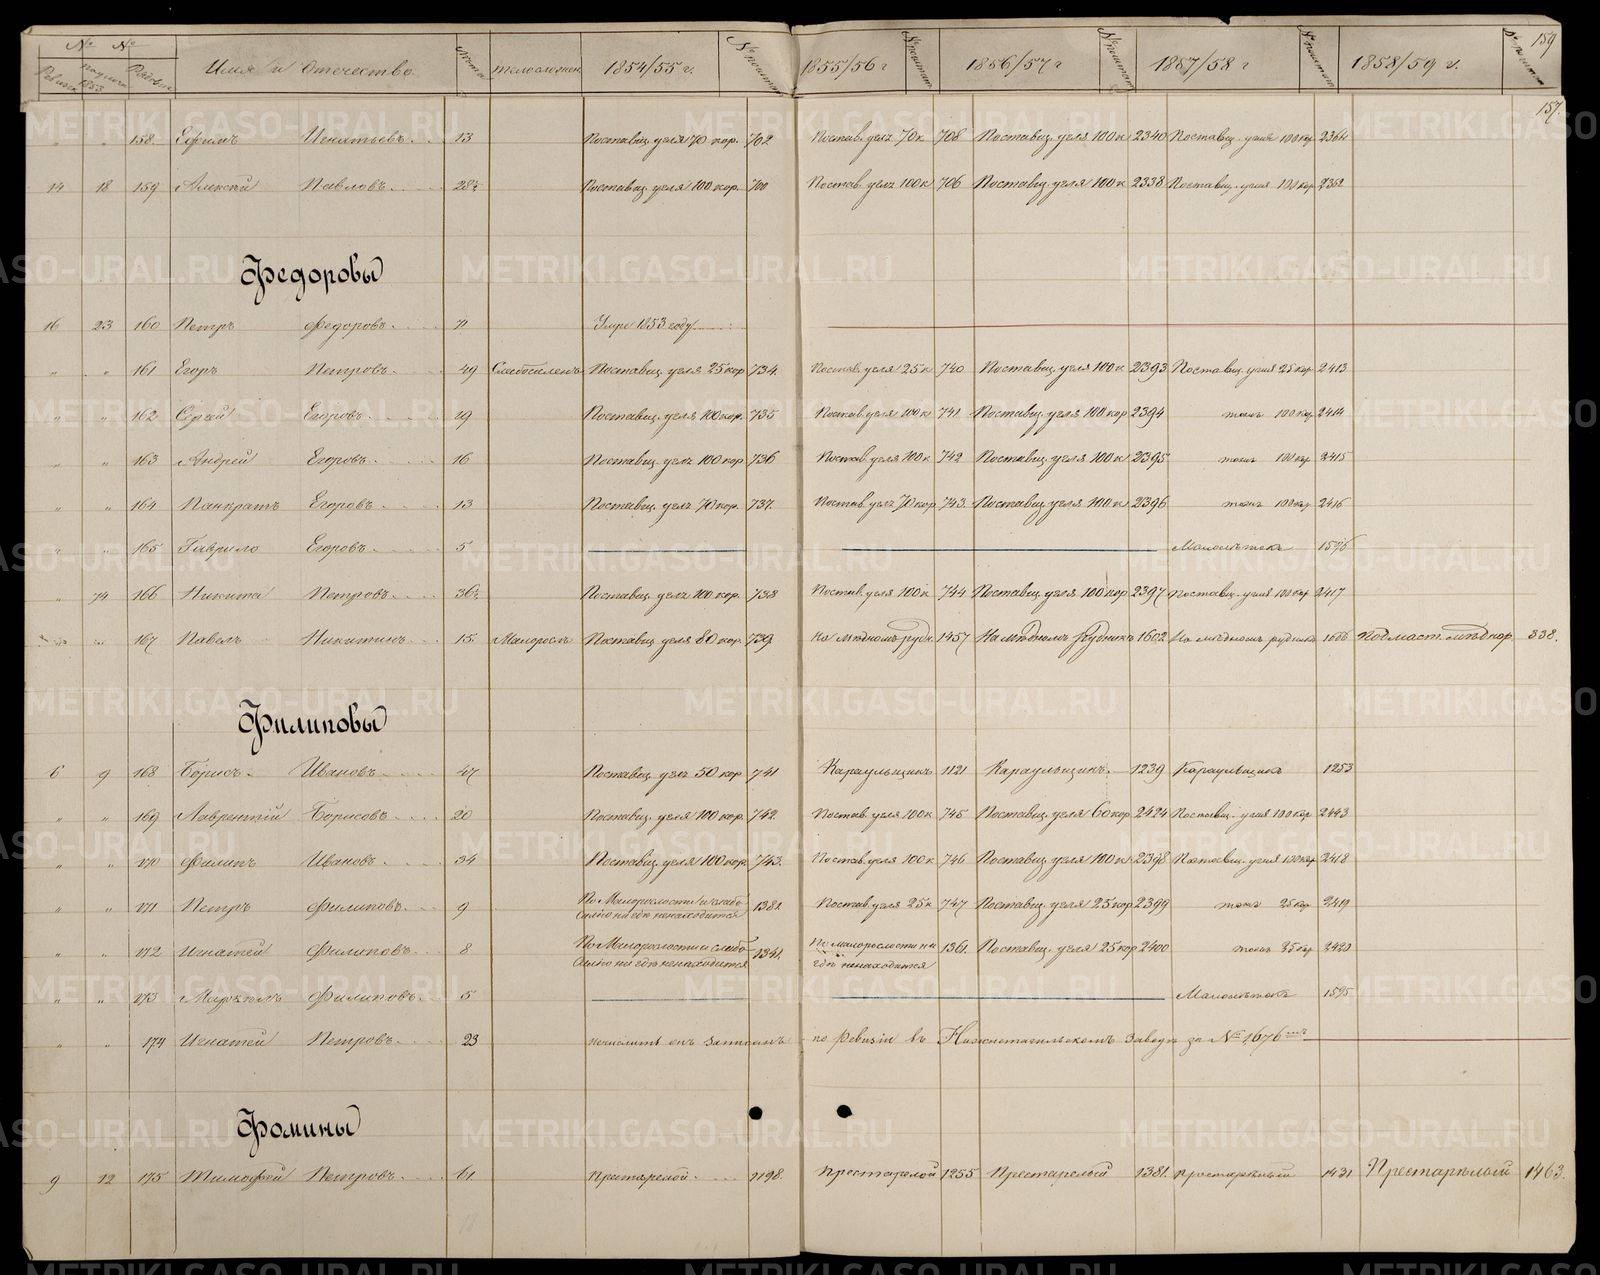 № № 159
Имя и Отчество Лета телосложен. 1854/55 г. 1855/56 г 1856/57 г 1857/58 г 1858/59 г.
157.
" " 158. Ефимъ Игнатьевъ 13 Поставщ. угля 70 кор. 702 Постав. угля 70 к 708 Поставщ. угля 100 к 2340 Поставщ. угля 100 кор 2364
14 18 159 Алексѣй Павловъ 28½ Поставщ. угля 100 кор. 700 Постав. угля 100 к 706 Поставщ. угля 100 к 2338 Поставщ. угля 100 кор 2362
Федоровы
16 23 160 Петръ Федоровъ 71 Умре 1853 году
" " 161 Егоръ Петровъ 49 Слабосиленъ Поставщ. угля 25 кор 734. Постав. угля 25 к 740 Поставщ. угля 100 к 2393 Поставщ. угля 25 кор 2413
" " 162 Сергѣй Егоровъ 19 Поставщ. угля 100 кор. 735 Постав. угля 100 к 741 Поставщ. угля 100 кор 2394 тожъ 100 кор 2414
" " 163 Андрей Егоровъ 16 Поставщ. угля 100 кор. 736 Постав. угля 100 к 742 Поставщ. угля 100 к 2395 тожъ 100 кор 2415
" " 164 Панкратъ Егоровъ 13 Поставщ. угля 70 кор. 737. Постав. угля 70 кор 743. Поставщ. угля 100 к 2396 тожъ 100 кор 2416
" " 165 Гаврило Егоровъ 5 Малолѣтокъ 1596
" 74 166 Никита Петровъ 36½ Поставщ. угля 100 кор. 738 Постав. угля 100 к 744 Поставщ. угля 100 кор 2397 Поставщ. угля 100 кор 2417
167 Павелъ Никитинъ 15 Малорослъ Поставщ. угля 80 кор. 739 На мѣдномъ рудн. 1457 На Мѣдномъ рудникѣ 1602 На мѣдномъ рудникѣ 1606 Подмаст. мѣд кор. 338.
Филиповы
6 9 168 Борисъ Ивановъ 47 Поставщ. угля 50 кор 741 Караульщикъ 1121 Караульщикъ. 1239 Караульщикъ 1253
" " 169 Лаврентій Борисовъ 20 Поставщ. угля 100 кор. 742. Постав. угля 100 к 745 Поставщ. угля 60 кор 2424 Поставщ. угля 100 кор 2443
" " 170 Филипъ Ивановъ 34 Поставщ. угля 100 кор. 743. Постав. угля 100 к 746 Поставщ. угля 100 к 2398 Поставщ. угля 100 кор 2418
" " 171 Петръ Филиповъ 9 По Малорослости и слабо- 1381. Постав. угля 25 к 747 Поставщ. угля 25 кор 2399 тожъ 25 кор 2419
силію ни гдѣ ненаходится
" " 172 Игнатей Филиповъ 8 По Малорослости и слабо- 1341. По малорослости ни 1361. Поставщ. угля 25 кор 2400 тожъ 25 кор 2420
силію ни гдѣ ненаходится гдѣ ненаходится
" " 173 Филиповъ 5 Малолѣтокъ 1595
" " 174 Игнатей Петровъ 23 по Ревизіи въ Нижнетагильскомъ Заводѣ за № 1676мъ
Фомины
9 12 175 Тимофей Петровъ 61 Престарелой 1198. Престарелой 1255 Престарелый 1381. Престарѣлый 1431 Престарѣлый 1463.
METRIKI.GASO-URAL.RU